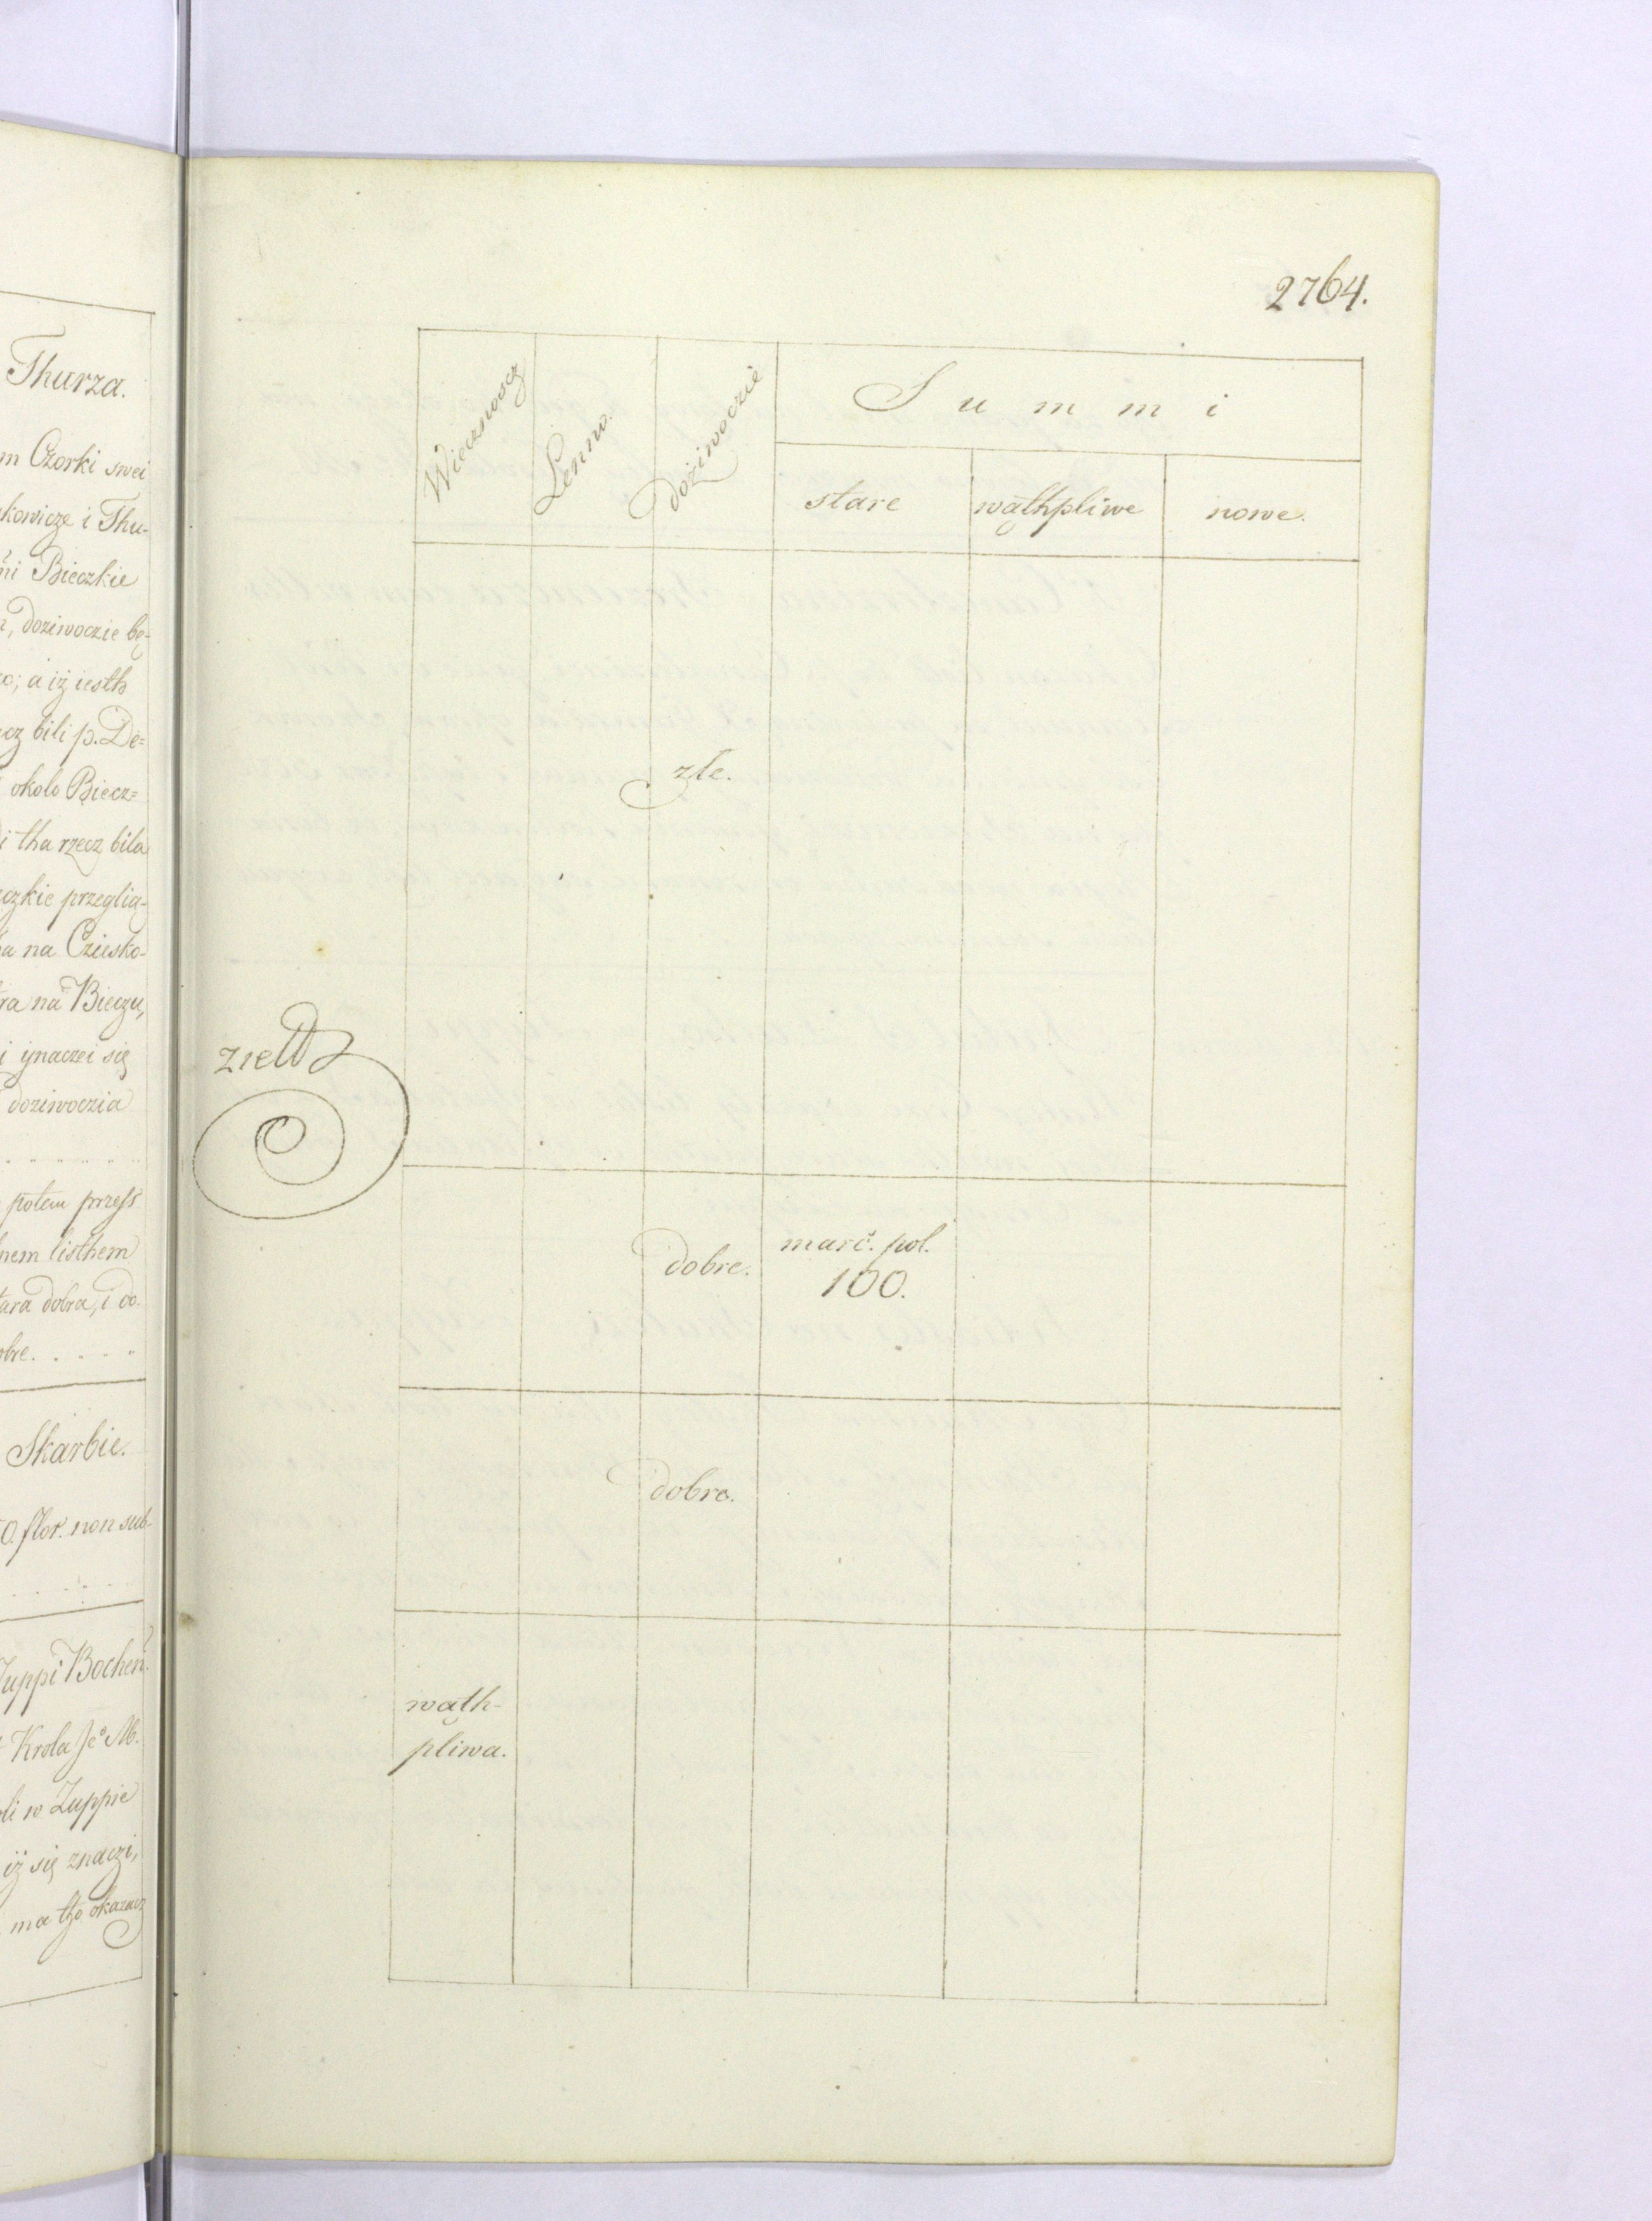 Thurza.
m Czorki swei
kowicze i Thu-
ni Bieczkie
, doziwoczie bę-
o; a iż iesth
cz bili p. De=
okolo Biecz=
i tha rzecz bila
czkie przeglia-
a na Cziesko-
ra na Bieczu,
i ynaczei się
doziwoczia
potem przess
nem listhem
tara dobra, i do
obre.....
Skarbie.
0. flor. non sub-
Zuppi Bochen.
Krola Je° M.
li w Zuppie
iż się znaczi,
ma tho okazacz
2764.
Wiecznoscz
Lenno.
Dożiwoczie
Summi
stare
wąthpliwe
nowe.
zle.
zieth
dobre.
març. pol.
100.
dobre.
wąth-
pliwa.